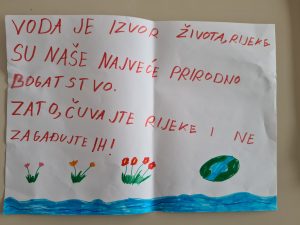 VODA JE IZVOR ŽIVOTA, RIJEKE
SU NAŠE NAJVEĆE PRIRODNO
BOGATSTVO.
ZATO, ČUVAJTE RIJEKE I NE
ZAGAĐUJTE IH!